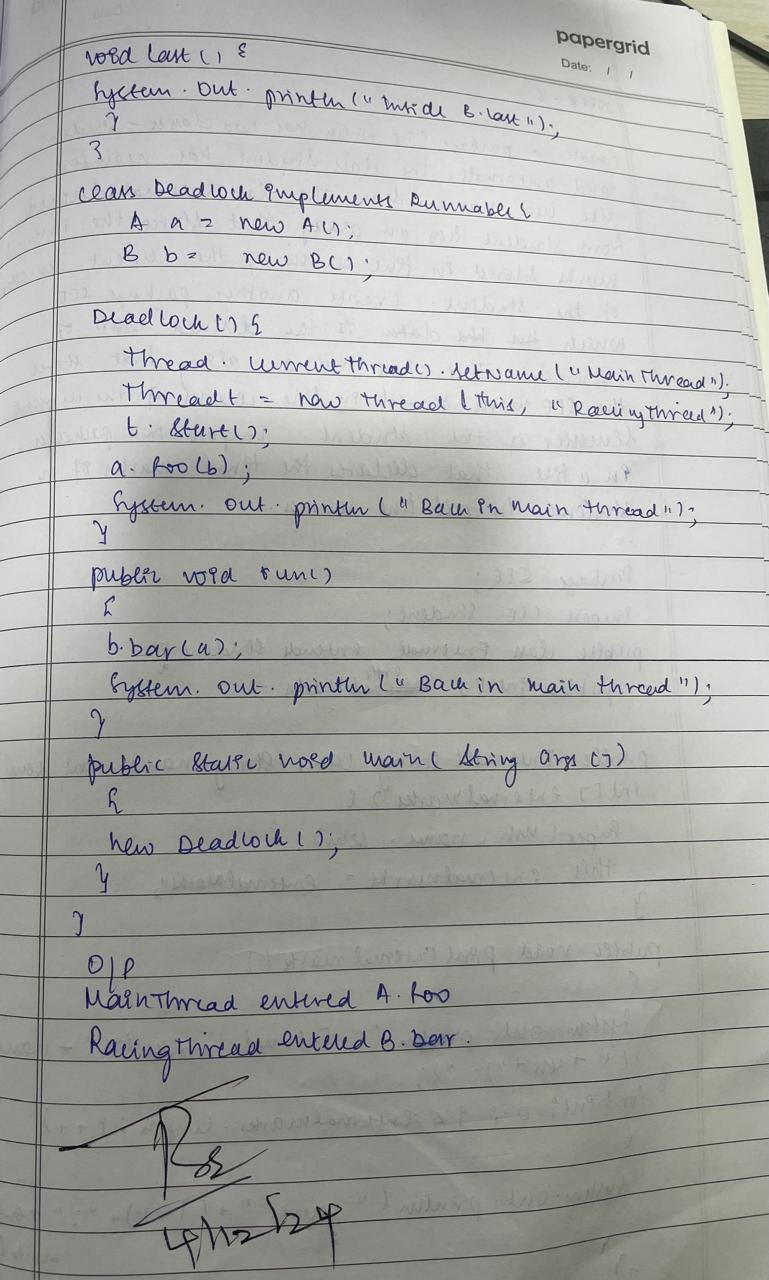 papergrid
Date: / /
void last() {
System.out.println("Inside B.last");
}
}
class Deadlock implements Runnable{
A a = new A();
B b = new B();
Deadlock() {
Thread.currentthread().setName("MainThread");
Thread t = new thread (this, "RacingThread");
t.start();
a.foo(b);
System.out.println("Back in main thread");
}
public void run()
{
b.bar(a);
System.out.println("Back in main thread");
}
public static void main( String args[])
{
new Deadlock();
}
}
O/P
MainThread entered A.foo
RacingThread entered B.bar.
4/12/24